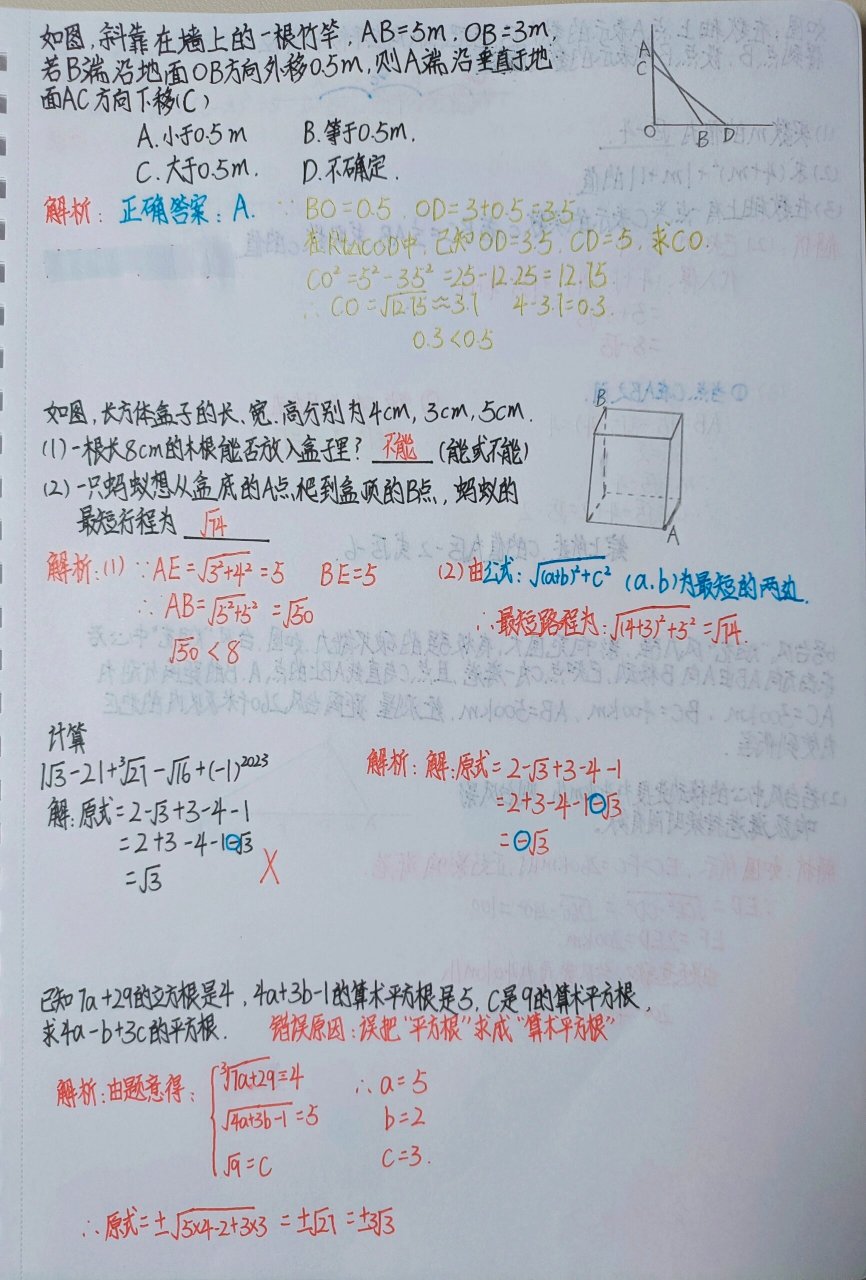 如图,斜靠在墙上的一根竹竿,AB=5m,OB=3m,
若B端沿地面OB方向外移0.5m,则A端沿垂直于地
面AC方向下移(C)
A.小于0.5m B.等于0.5m.
C.大于0.5m. D.不确定.
A
C
O
B
D
解析: 正确答案: A. ∵ BO=0.5 . OD=3+0.5=3.5
在Rt△COD中,已知OD=3.5. CD=5,求CO.
CO²=5²-3.5²=25-12.25=12.75.
∴ CO=√12.75≈3.7 4-3.7=0.3.
0.3<0.5
如图,长方体盒子的长、宽、高分别为4cm,3cm,5cm.
(1)一根长8cm的木根能否放入盒子里? 不能 (能或不能)
(2)一只蚂蚁想从盒底的A点,爬到盒顶的B点,蚂蚁的
最短行程为 √74
B
A
解析:(1) ∵AE=√3²+4²=5 BE=5
∴AB=√5²+5²=√50
√50<8
(2)由公式:√(a+b)²+c² (a.b)为最短的两边.
∴最短路程为:√(4+3)²+5²=√74.
计算
|√3-2|+³√27-√16+(-1)²⁰²³
解:原式=2-√3+3-4-1
=2+3-4-1-√3
=√3 ×
解析:解:原式=2-√3+3-4-1
=2+3-4-1-√3
=-√3
已知7a+29的立方根是4,4a+3b-1的算术平方根是5,C是9的算术平方根,
求4a-b+3c的平方根. 错误原因:误把“平方根”求成“算术平方根”
解析:由题意得:{³√7a+29=4 ∴a=5
√4a+3b-1=5 b=2
√9=C C=3.
∴原式=±√5×4-2+3×3=±√27=±3√3